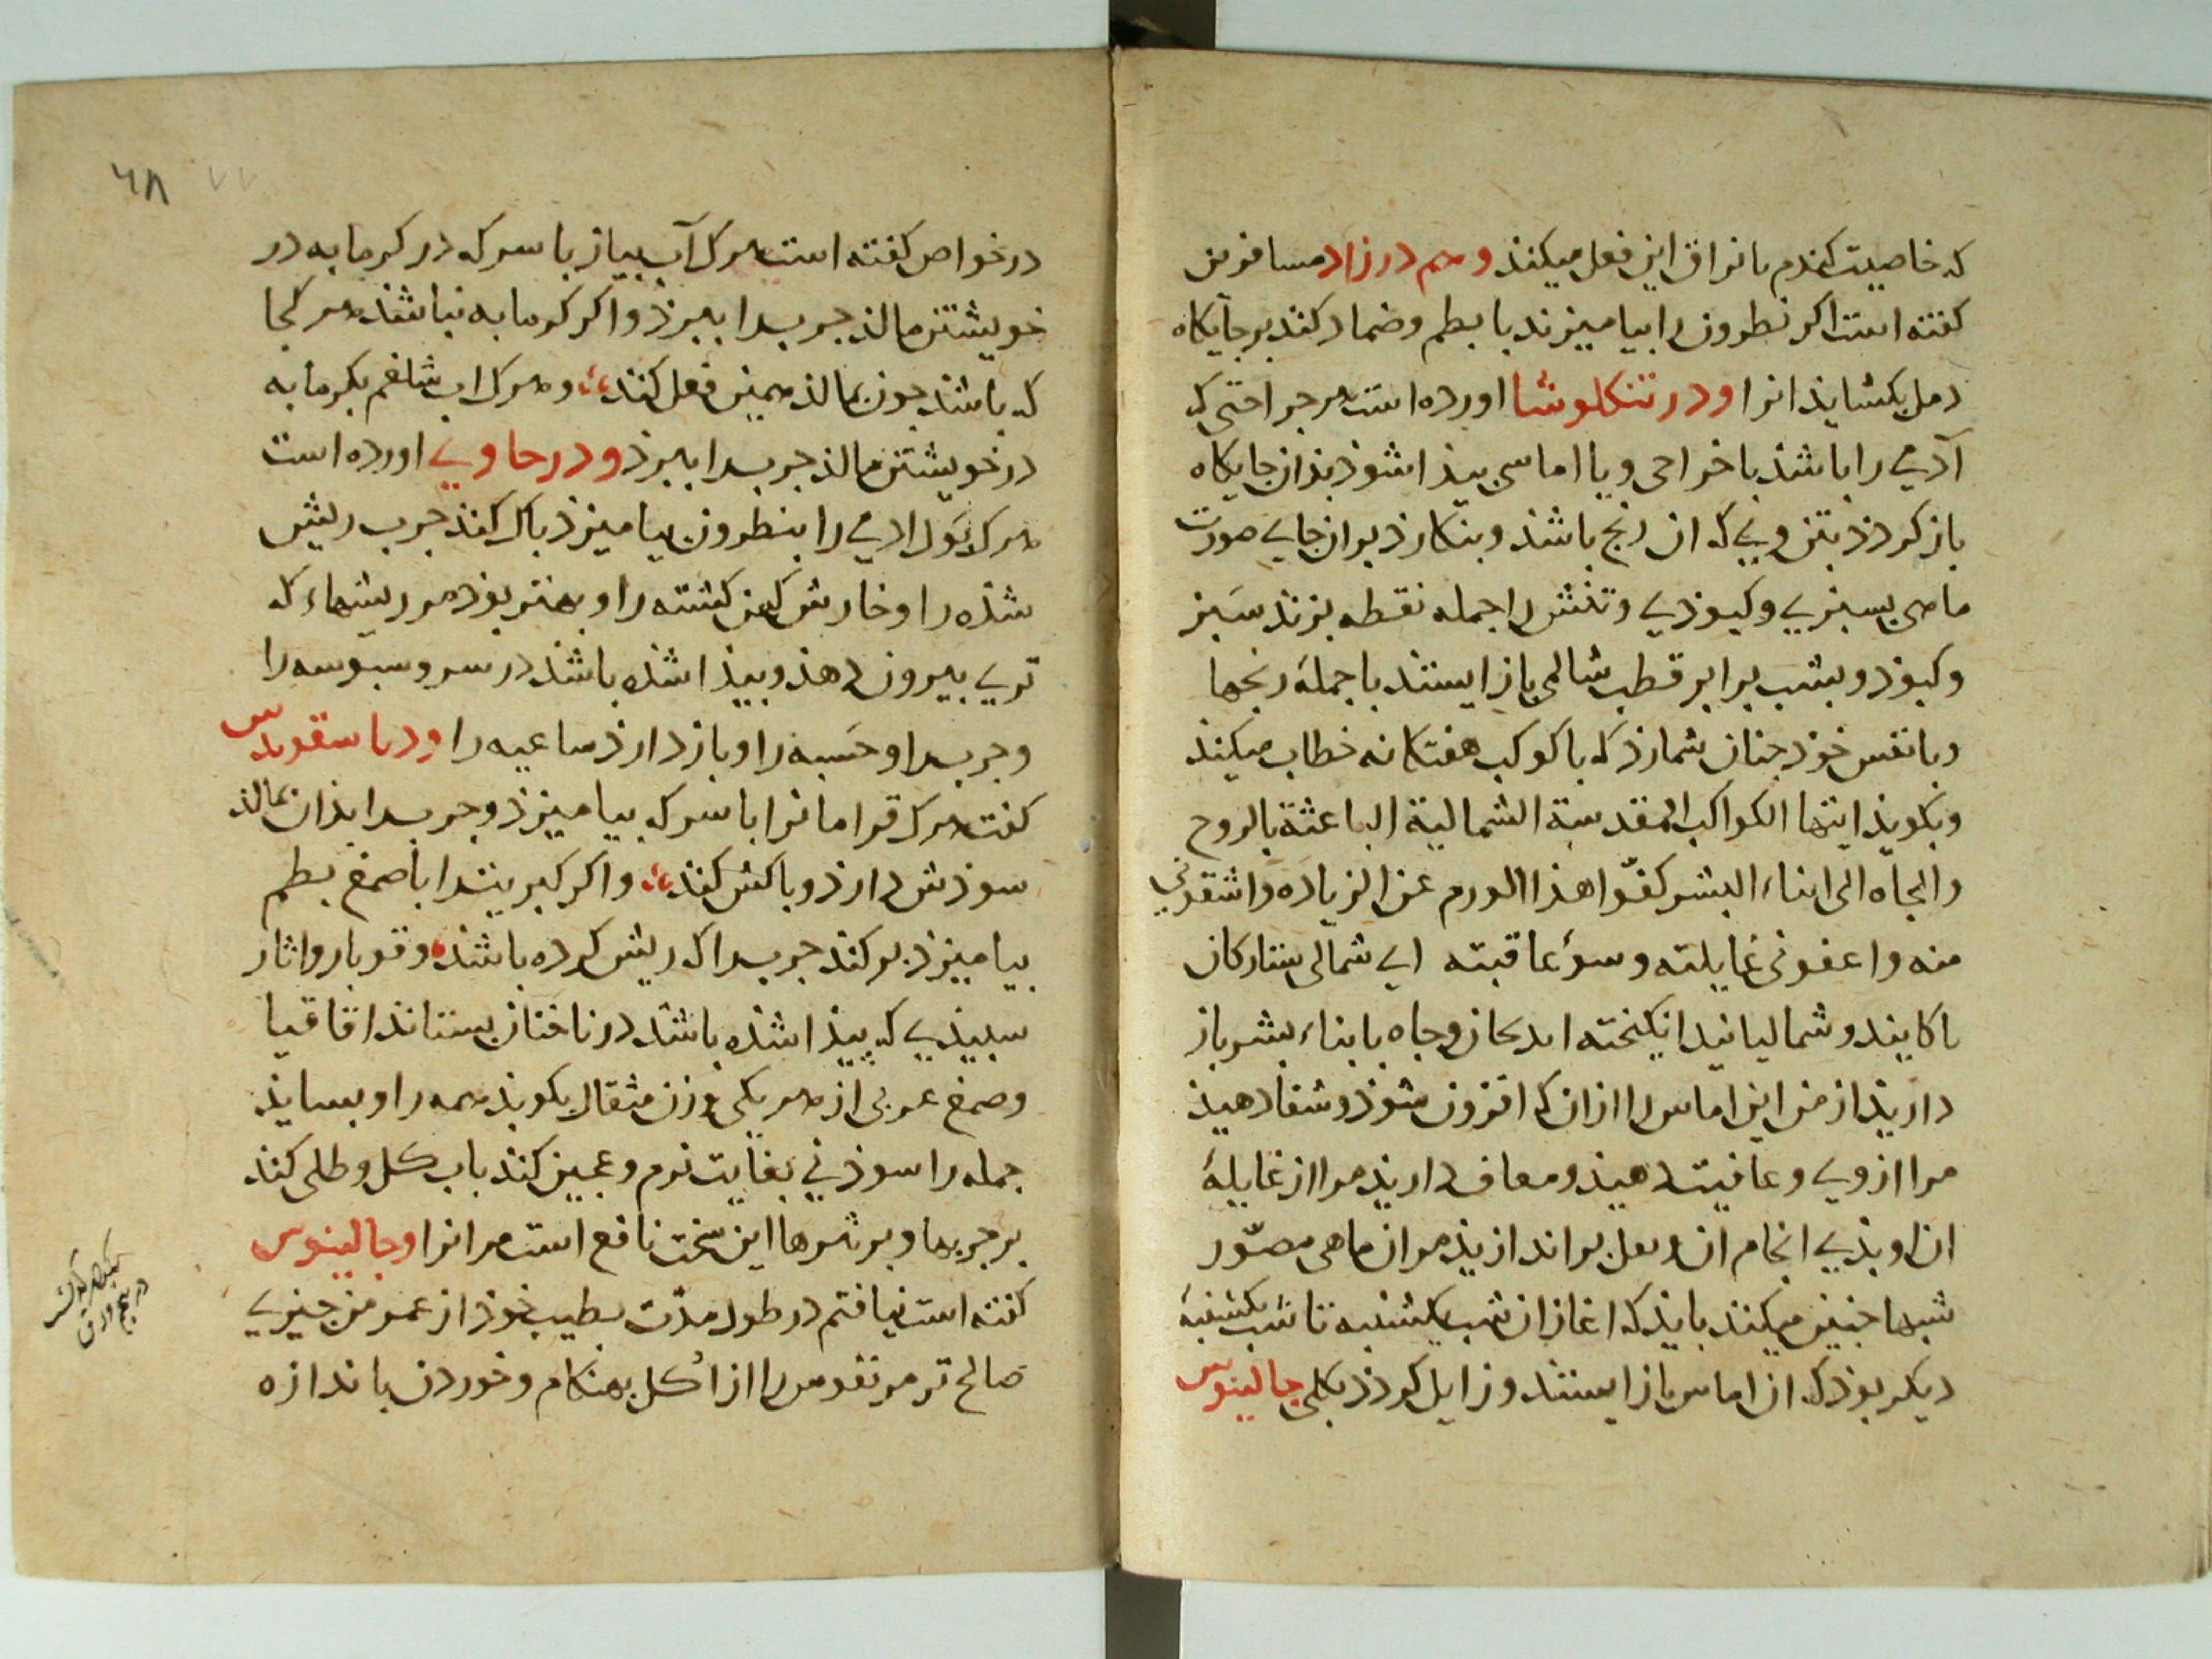 که خاصیت کندم بانزاق این فعل میکند وهم در زاد مسافرین
کفته است اکر نطرون را بیامیزند با بطم وضماد کند بر جایکاه
دمل بکشاید انرا ودر تنکلوشا اورده است هر جراحتی که
آدمی را باشذ یا خراجی ویا اماسی بیذا شوذ بذان جایکاه
باز کردذ بتن ویی که ان رنج باشذ وبنکارذ بران جای صورت
ماهی بسبزی وکبوذی وتنش را جمله نقطه بزند سبز
وکبوذ وبشب برابر قطب شمالی باز ایستد با جملهٔ رنجها
وبا نفس خوذ جنان شمارذ که با کوکب هفتکانه خطاب میکند
وبکویذ ایتها الکواکب المقدسة الشمالیة الباعثة بالروح
والجاه الی ابناء البشر کفّوا هذا الورم عن الزیاده واشفونی
منه واعفونی غایلته وسوء عاقبته ای شمالی ستارکان
باکانید وشمالیانید انکیخته اید بجان وجاه بابناء بشر باز
داریذ از من این اماس را ازان که افزون شوذ وشفا دهیذ
مرا ازوی وعافیت دهیذ ومعاف داریذ مرا از غایلهٔ
ان وبذی انجام ان وبعد براندازیذ مران ماهی مصوّر
شبها جنین میکند بایذ که اغاز ان شب یکشنبه تا شب یکشنبهٔ
دیکر بوذ که ان اماس باز ایستد وزایل کردذ بکلی جالینوس
۶۸ ۷۷
در خواص کفته است هرک آب بیاز با سرکه در کرمابه در
خویشتن مالذ جرب را ببرذ واکر کرمابه نباشذ هر کجا
که باشذ جون بمالذ همین فعل کنذ وهرک اب شلغم بکرمابه
در خویشتن مالذ جرب را ببرذ ودر حاوی اورده است
هرک بَول ادمی را بنطرون بیامیزذ باک کنذ جرب ریش
شذه را وخارش کهن کشته را وبهتر بوذ مر ریشهاء که
تری بیرون دهذ وبیذا شذه باشذ در سر وسبوسه را
وجرب را وحسبه را وباز دارذ ساعیه را ودیاسقوریدس
کفت هرک قرامانرا با سرکه بیامیزذ وجرب را بذان بمالذ
سوذش دارذ وباکش کنذ واکر کبریت را با صمغ بطم
بیامیزذ بر کنذ جرب را که ریش کرده باشذ وقوبا واثار
سبیذی که بیذا شذه باشذ در ناخنان بستاند اقاقیا
وصمغ عربی از هر یکی وزن مثقال بکوبذ همه را وبسایذ
جمله را سوذنی بغایت نرم وعجین کنذ باب کل وطلی کند
بر جربها وبر ثرها این سخت نافع است مر انرا وجالینوس
کفته است نیافتم در طول مدّت بطیب خوذ از عمر من جیزی
صالح تر مر نقرس را از اُکل بهنکام وخوردن باندازه